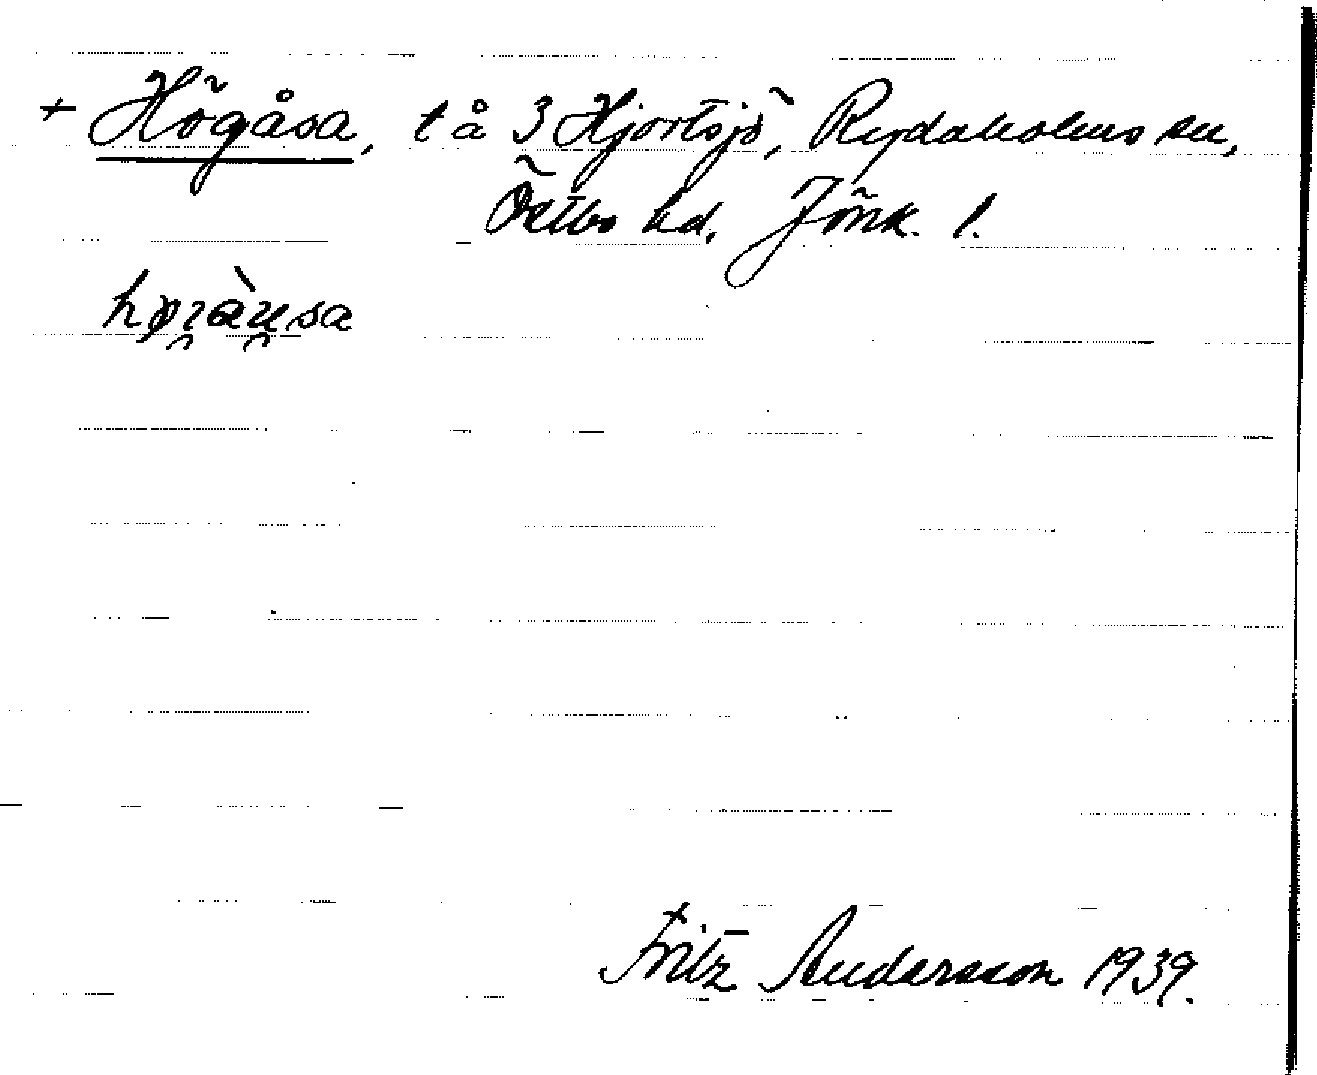 + Högåsa, tå 3 Hjortsjö, Rydaholms sn,
Östbo hd. Jönk. l.
Fritz Andersson 1939.